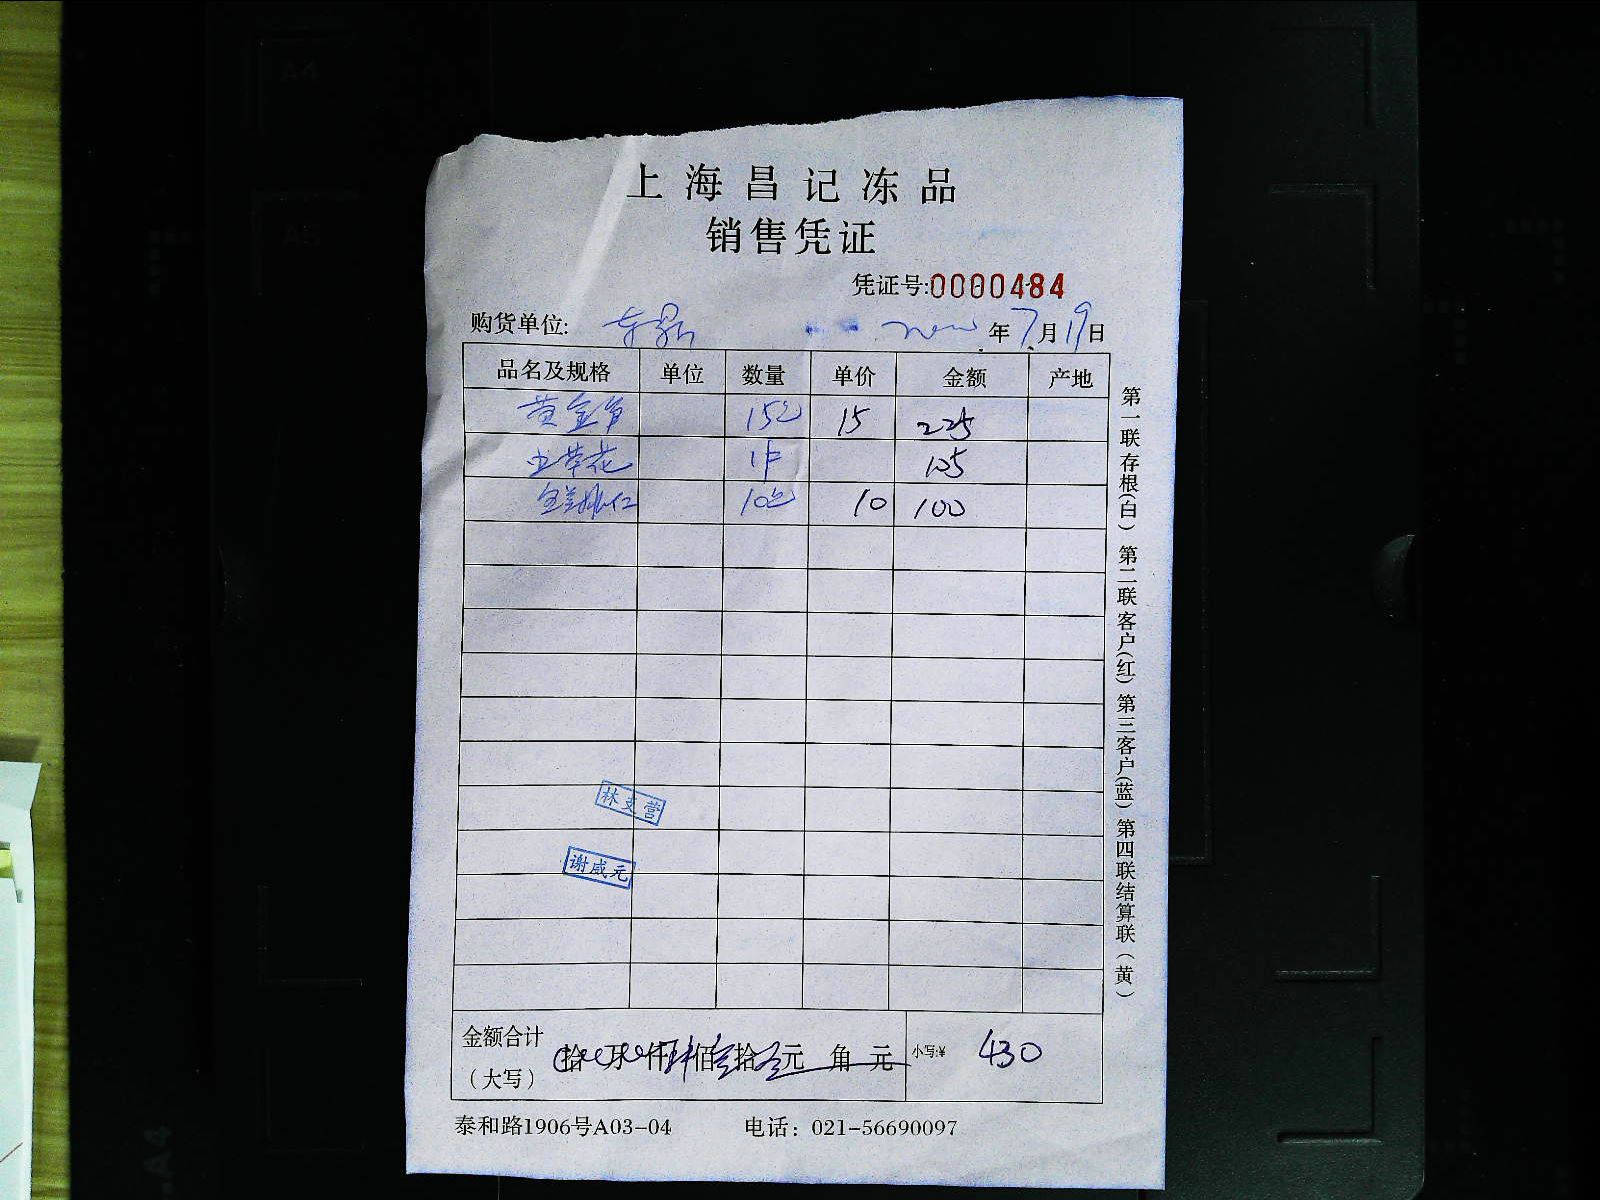 上海昌记冻品
销售凭证
凭证号:0000484
购货单位: 年7月19日
品名及规格 单位 数量 单价 金额 产地
黄金 15包 15 225
虫草花 1件 105
10包 10 100
林支营
谢成元
金额合计（大写） 拾 万 仟 肆佰 叁拾 元 角 元 小写:¥ 430
泰和路1906号A03-04 电话：021-56690097
第一联存根(白) 第二联客户(红) 第三客户(蓝) 第四联结算联(黄)
A4
A5
A4